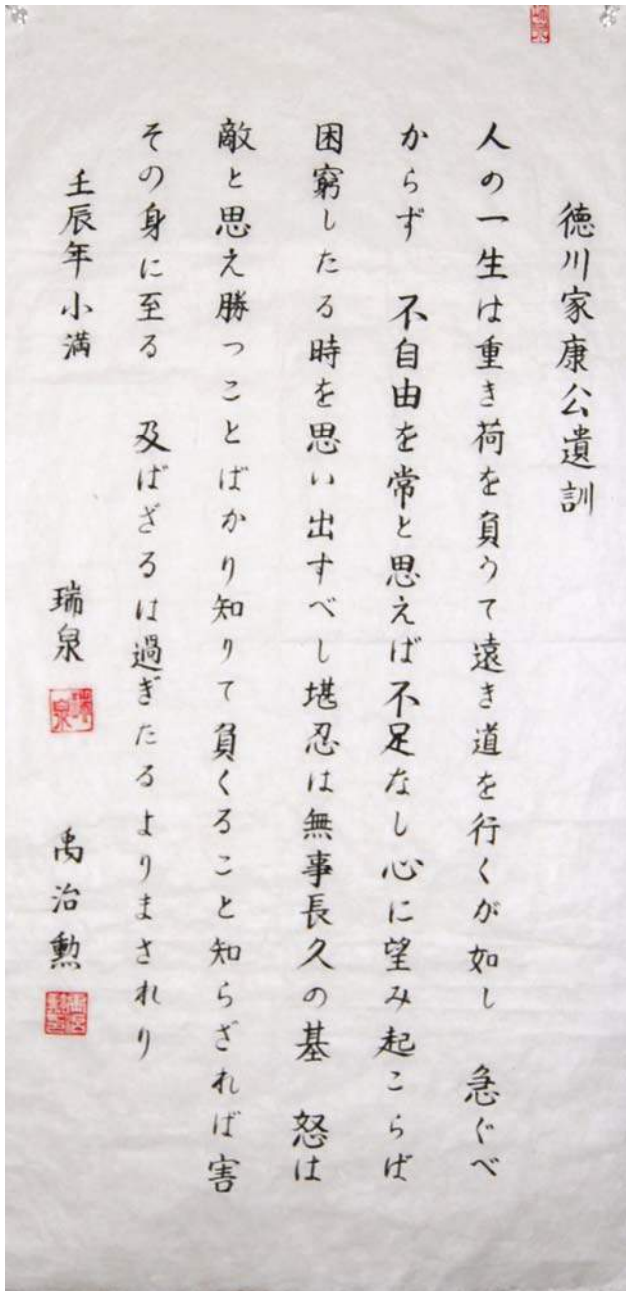 徳川家康公遺訓
人の一生は重き荷を負うて遠き道を行くが如し 急ぐべ
からず 不自由を常と思えば不足なし心に望み起こらば
困窮したる時を思い出すべし堪忍は無事長久の基 怒は
敵と思え勝つことばかり知りて負くること知らざれば害
その身に至る 及ばざるは過ぎたるよりまされり
壬辰年小満
瑞泉
瑞泉
禹治勲